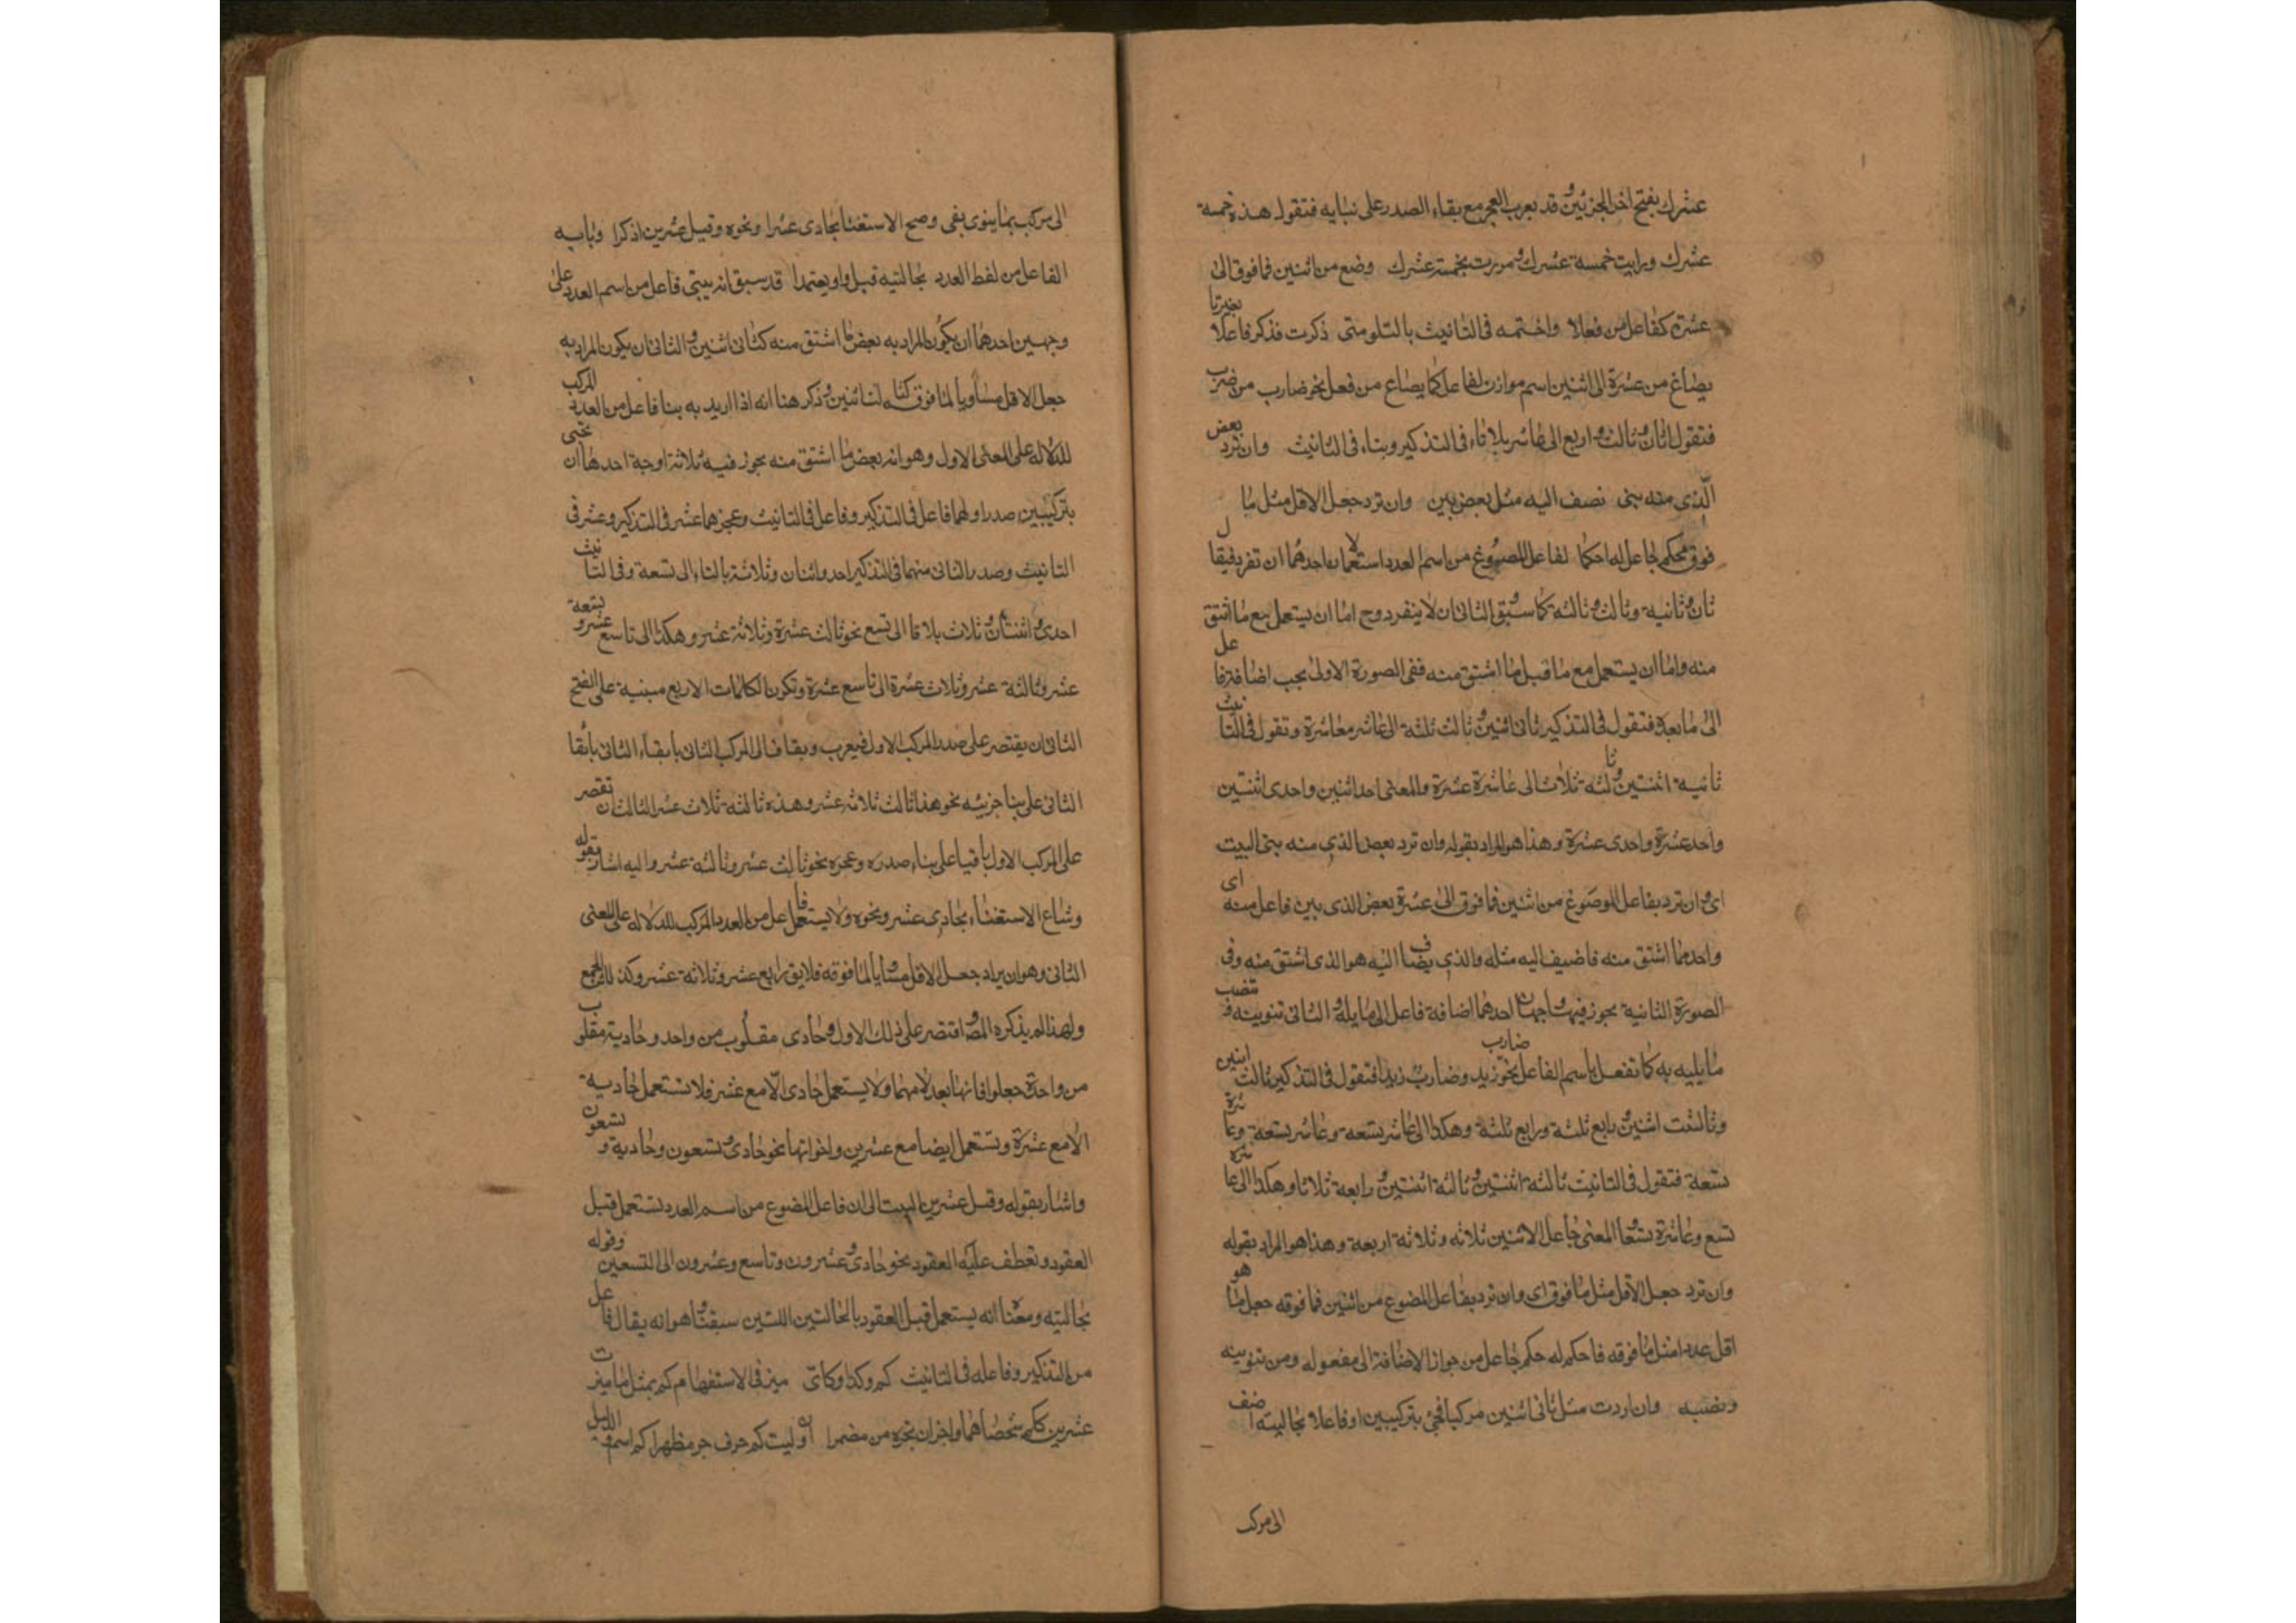 عشرك بفتح اخر الجزئين وقد يعرب العجز مع بقاء الصدر على بنايه فتقول هذه خمسة
عشرك ورايت خمسة عشرك ومررت بخمسة عشرك وضع من اثنين فما فوق الى
عشرة كفاعل من فعلا واختمه في التانيث بالتا ومتى ذكرت فذكر فاعلا بغير تا
يصاغ من عشرة الى اثنين اسم موازن لفاعل كما يصاغ من فعل نحو ضارب من ضرب
فتقول ثان وثالث ورابع الى عاشر بلا تاء في التذكير وبتاء في التانيث وان ترد بعض
الذي منه بنى تضف اليه مثل بعض بين وان ترد جعل الاقل مثل ما
فوق فحكم جاعل له احكما لفاعل المصوغ من اسم العدد استعمالان احدهما ان تفرد فيقال
ثان وثانية وثالث وثالثة كما سبق والثاني ان لا ينفرد وح اما ان يستعمل مع ما اشتق
منه واما ان يستعمل مع ما قبل ما اشتق منه ففي الصورة الاولى يجب اضافة فاعل
الى ما بعده فتقول في التذكير ثاني اثنين وثالث ثلثة الى عاشر عشرة وتقول في التانيث
ثانية اثنتين وثالثة ثلاث الى عاشرة عشرة والمعنى احد اثنين واحدى اثنتين
واحد عشرة واحدى عشرة وهذا هو المراد بقوله وان ترد بعض الذي منه بنى البيت
اى وان ترد بفاعل المصوغ من اثنين فما فوق الى عشرة بعض الذي بين فاعل منه اى
واحد مما اشتق منه فاضيف اليه مثله والذي يضاف اليه هو الذي اشتق منه وفي
الصورة الثانية يجوز فيها وجهان احدهما اضافة فاعل الى ما يليه والثاني تنوينه ونصب
ما يليه به كما تفعل باسم الفاعل نحو ضارب زيد وضارب زيدا فتقول في التذكير ثالث اثنين
وثالثت اثنين ورابع ثلثة ورابع ثلثة وهكذا الى عاشر تسعة وعاشر تسعة وعاشرة
تسعة فتقول في التانيث ثالثة اثنتين وثالثة اثنتين ورابعة ثلاثا وهكذا الى عاشرة
تسع وعاشرة تسعا والمعنى جاعل الاثنين ثلاثه وثلاثة اربعة وهذا هو المراد بقوله
وان ترد جعل الاقل مثل ما فوق اى وان ترد بفاعل المصوغ من اثنين فما فوقه جعل ما هو
اقل عددا مثل ما فوقه فاحكم له حكم جاعل من جواز الاضافة الى مفعوله ومن تنوينه
ونصبه وان اردت مثل ثاني اثنين مركبا فجئ بتركيبين او فاعلا بحاليته اضف
الى مركب
الى مركب بما ينوى يفى وصح الاستغنا بحادى عشرا ونحوه وقبل عشرين اذكرا وبابه
الفاعل من لفظ العدد بحالتيه قبل واو يعتمدا قد سبق انه يبنى فاعل من اسم العدد على
وجهين احدهما ان يكون المراد به بعض ما اشتق منه كثاني اثنين والثاني ان يكون المراد به
جعل الاقل مساويا لما فوق كثالث اثنين وذكر هنا انه اذا اريد به بنا فاعل من العدد المركب
للدلالة على المعنى الاول وهو انه بعض ما اشتق منه يجوز فيه ثلاثة اوجه احدها ان تجى
بتركيبين صدر اولهما فاعل في التذكير وفاعل في التانيث وعجزهما عشر في التذكير وعشر في
التانيث وصدر الثاني منهما في التذكير احد واثنان وثلاثة بالتاء الى تسعة وفي التانيث
احدى واثنتان وثلاث بلا تا الى تسع نحو ثالث عشرة وثلاثة عشر وهكذا الى تاسع عشر وتسعة
عشر وثالثة عشر وثلاث عشرة الى تاسع عشرة وتكون الكلمات الاربع مبنية على الفتح
الثاني ان يقتصر على صدر المركب الاول فيعرب ويضاف الى المركب الثاني بابقاء الثاني بابقا
الثاني على بنا جزئيه نحو هذا ثالث ثلاثة عشر وهذه ثالثة ثلاث عشر الثالث ان تقصر
على المركب الاول باقيا على بناء صدره وعجزه نحو ثالث عشر وثالثة عشر واليه اشار بقوله
وشاع الاستغناء بحادى عشر ونحوه ولا يستعمل فاعل من العدد المركب للدلالة على المعنى
الثاني وهو ان يراد جعل الاقل مساويا لما فوقه فلا يق رابع عشر وثلاثة عشر وكذلك الجمع
ولهذا لم يذكره المص واقتصر على ذلك الاول وحادى مقلوب من واحد وحادية مقلوب
من واحدة جعلوا فاءها بعد لامهما ولا يستعمل حادى الا مع عشر فلا تستعمل حادية
الا مع عشرة ويستعمل ايضا مع عشرين واخواتها نحو حادى وتسعون وحادية وتسعون
واشار بقوله وقبل عشرين البيت الى ان فاعل المصوغ من اسم العدد تستعمل قبل
العقود وتعطف عليه العقود نحو حادى وعشرون وتاسع وعشرون الى التسعين وقوله
بحالتيه ومعناه انه يستعمل قبل العقود بالحالتين اللتين سبقتا وهو انه يقال فاعل
من التذكير وفاعله في التانيث كم وكذا وكاى ميز في الاستفهام كم بمثل ما ميزت
عشرين ككم شخصا سما واجز ان تجره من مضمرا ان وليت كم حرف جر مظهرا كم اسم